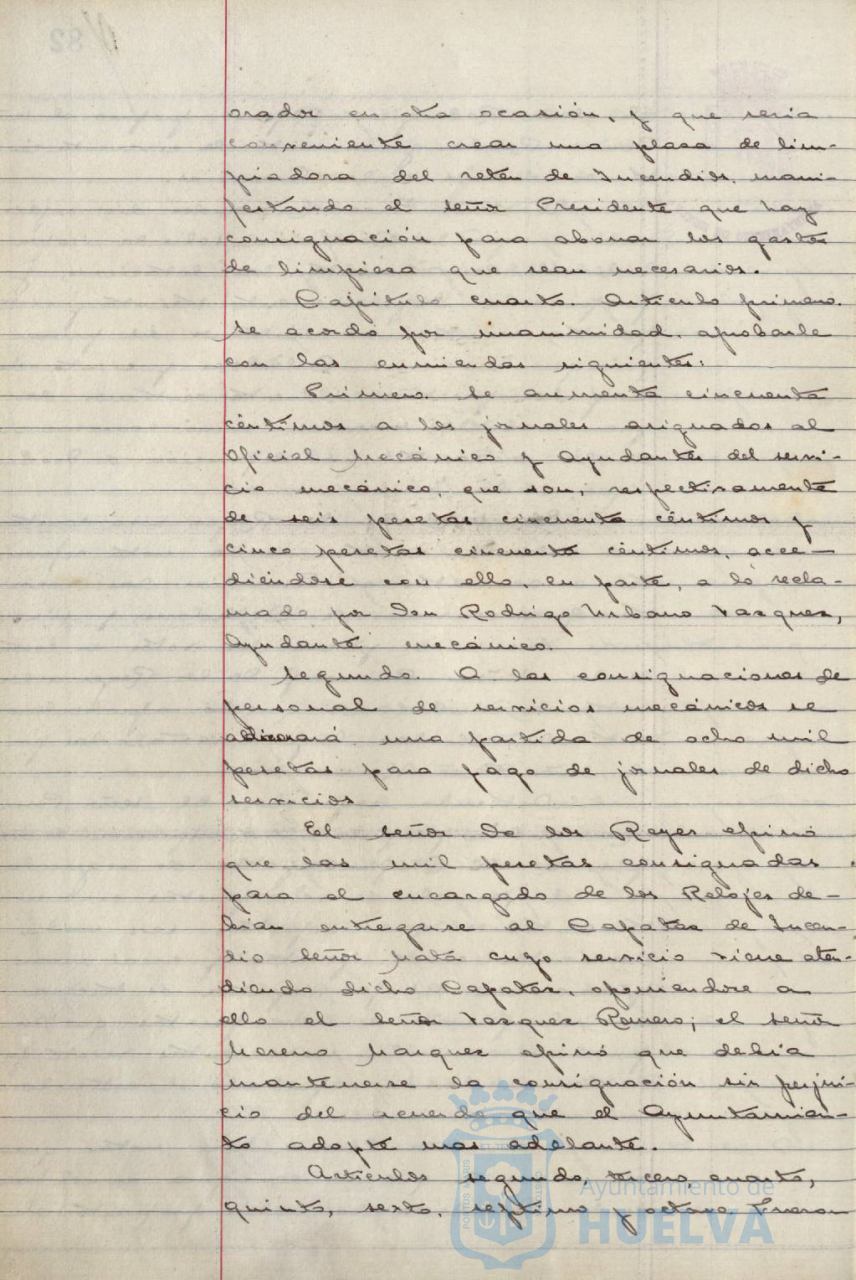 orador en otra ocasión, y que sería
conveniente crear una plasa de lim-
piadora del reten de Incendios, mani-
festando el señor Presidente que hay
consignación para abonar los gastos
de limpiesa que sean necesarios.
Capítulo cuarto. Artículo primero.
Se acordó por unanimidad, aprobarle
con las enmiendas siguientes:
Primero. Se aumenta cincuenta
céntimos a los jornales asignados al
Oficial Mecánico y Ayudantes del servi-
cio mecánico, que son, respectivamente
de seis pesetas cincuenta céntimos y
cinco pesetas cincuenta céntimos, acce-
diéndose con ello, en parte, a lo recla-
mado por Don Rodrigo Urbano Vasquez,
Ayudante mecánico.
Segundo. A las consignaciones de
personal de servicios mecánicos se
adicionará una partida de ocho mil
pesetas para pago de jornales de dicho
servicios
El señor De los Reyes opinó
que las mil pesetas consignadas
para el encargado de los Relojes de-
bían entregarse al Capataz de Incen-
dio Señor Mata cuyo servicio viene aten-
diendo dicho Capataz, oponiendose a
ello el Señor Vasquez Romero; el señor
Moreno Marquez opinó que debía
mantenerse la consignación sin perjui-
cio del acuerdo que el Ayuntamien-
to adopte mas adelante.
Artículos segundo, tercero, cuarto,
quinto, sexto, séptimo y octavo. Fueron
Ayuntamiento de
HUELVA
82